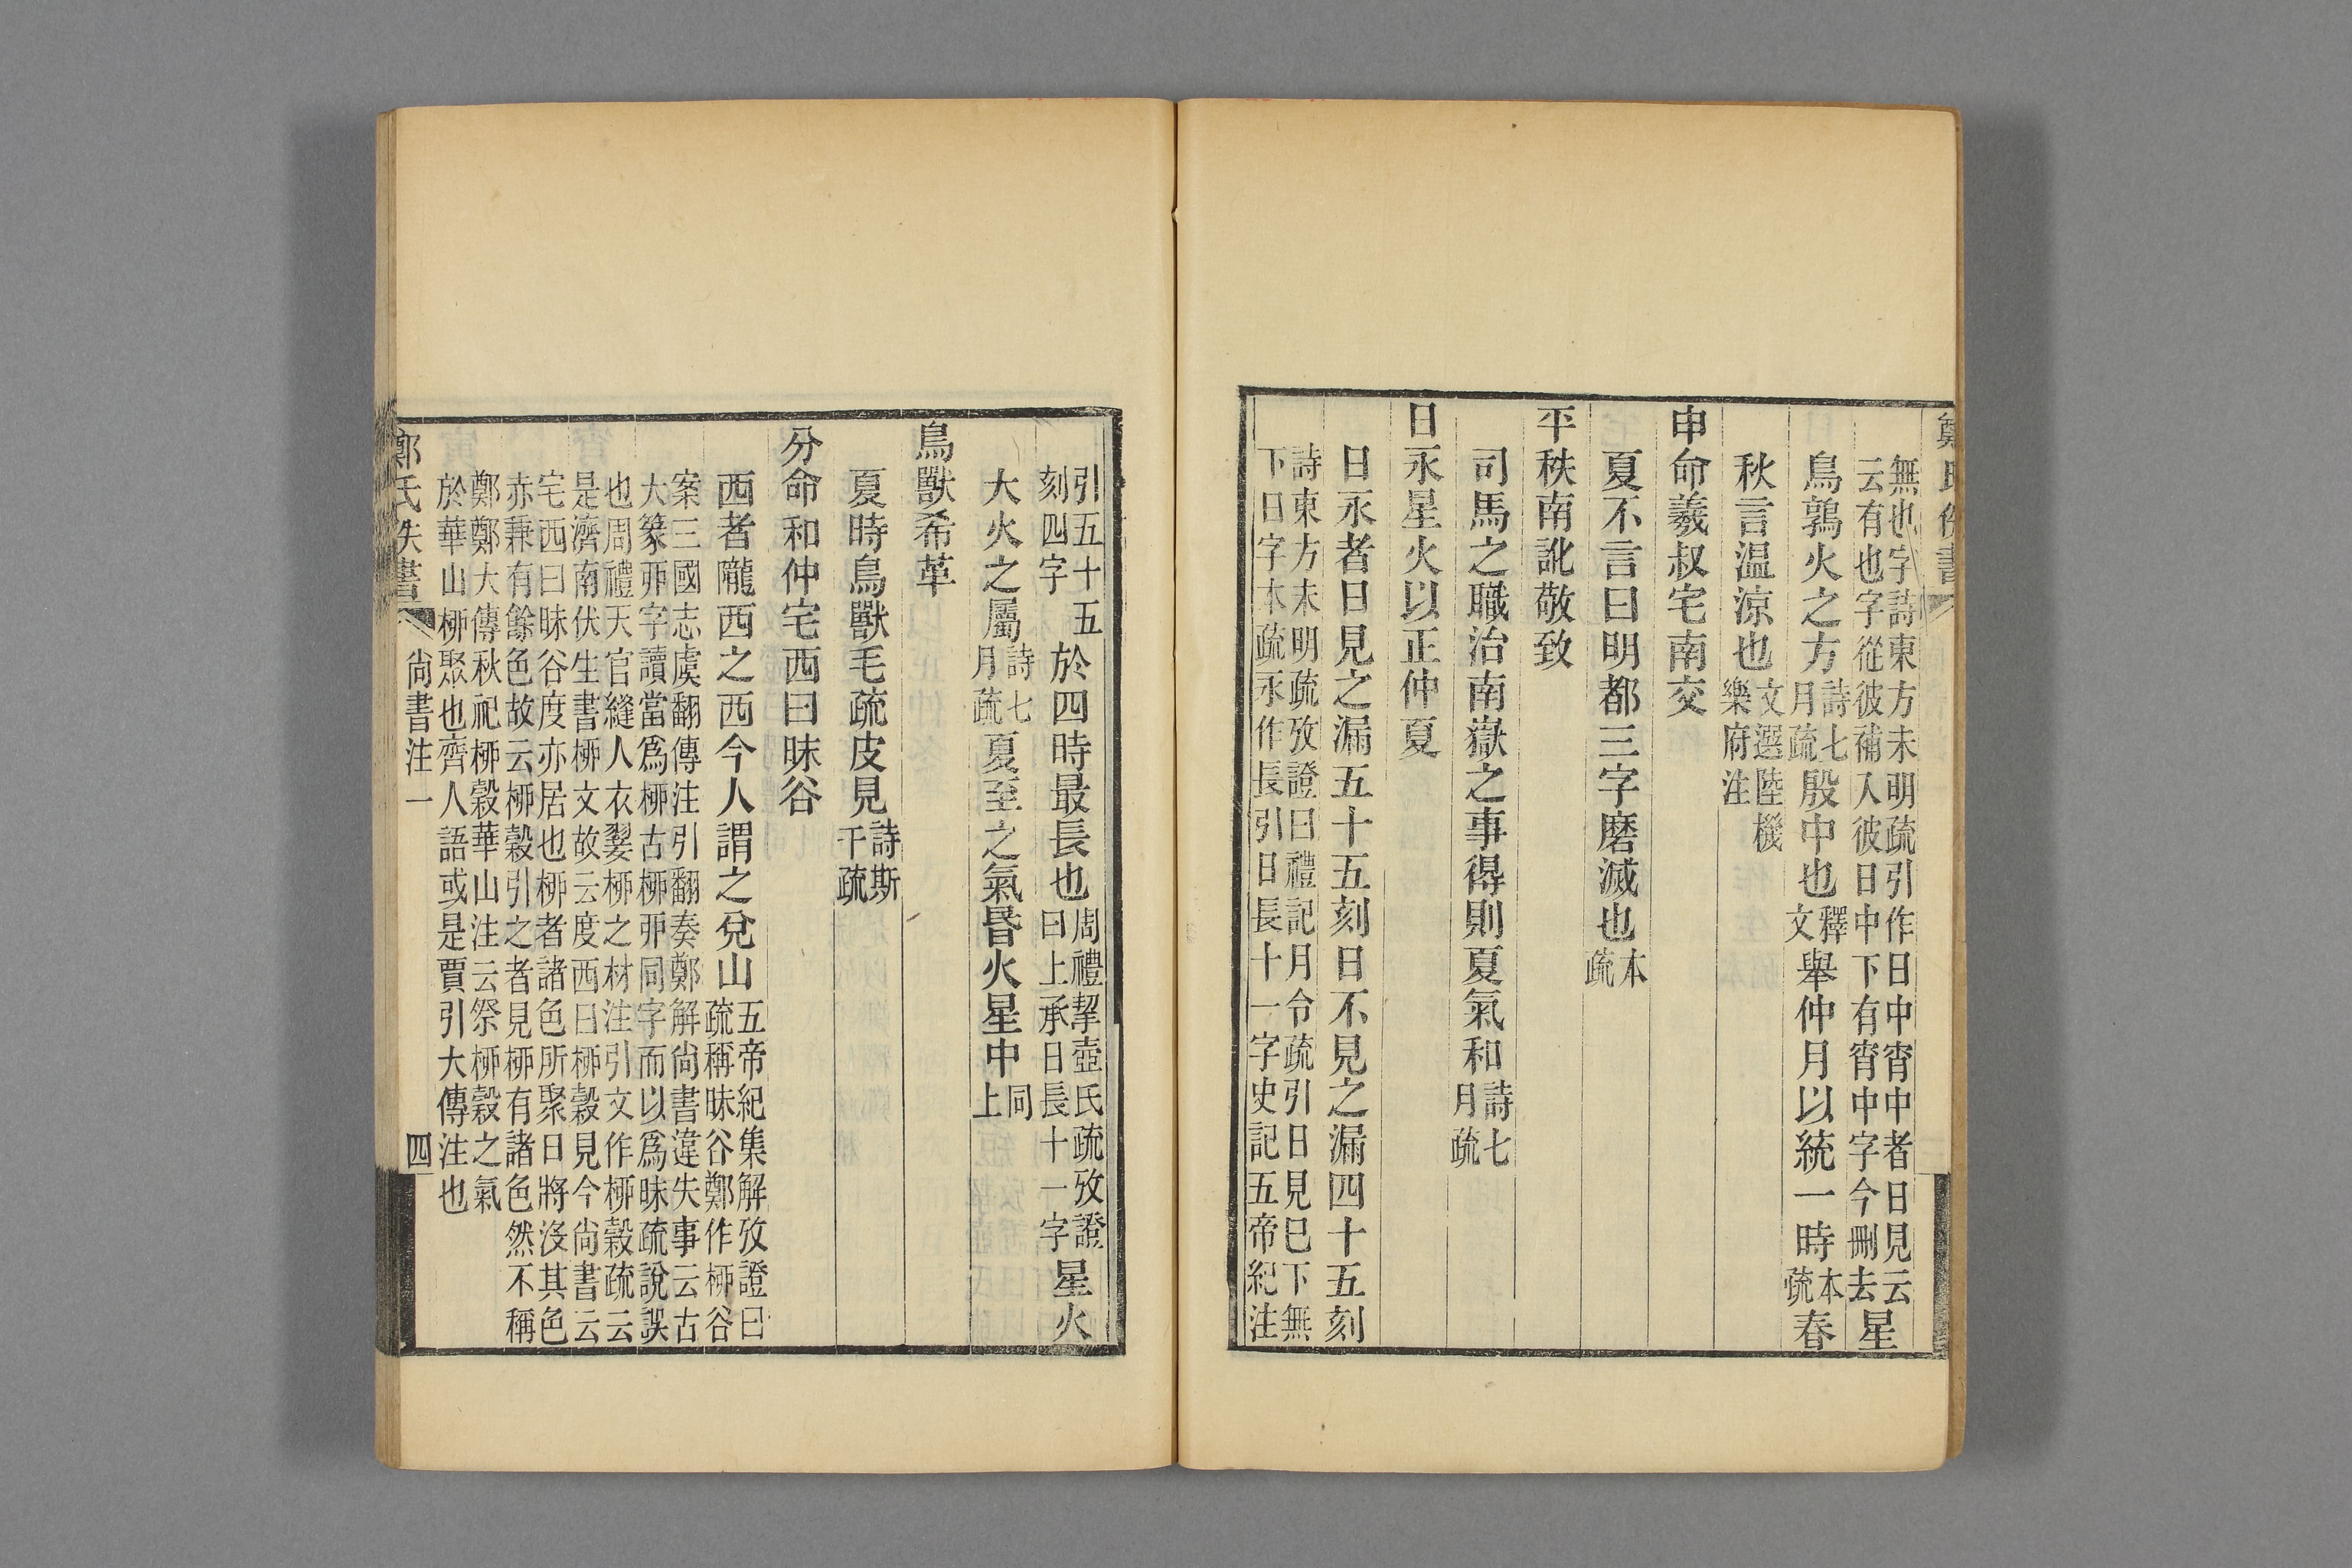 無也字詩東方未明疏引作日中宵中者日見云
云有也字從彼補入彼日中下有宵中字今刪去
星
鳥鶉火之方
詩七
月疏
殷中也
釋
文
舉仲月以統一時
本
疏
春
秋言溫涼也
文選陸機
樂府注
申命羲叔宅南交
夏不言曰明都三字磨滅也
本
疏
平秩南訛敬致
司馬之職治南嶽之事得則夏氣和
詩七
月疏
日永星火以正仲夏
日永者日見之漏五十五刻日不見之漏四十五刻
詩東方未明疏攷證曰禮記月令疏引日見巳下無
下日字本疏永作長引日長十一字史記五帝紀注
引五十五
刻四字
於四時最長也
周禮挈壺氏疏攷證
曰上承日長十一字
星火
大火之屬
詩七
月疏
夏至之氣昏火星中
同
上
鳥獸希革
夏時鳥獸毛疏皮見
詩斯
干疏
分命和仲宅西曰昧谷
西者隴西之西今人謂之兌山
五帝紀集解攷證曰
疏稱昧谷鄭作桺谷
案三國志虞翻傳注引翻奏鄭解尚書違失事云古
大篆丣字讀當爲桺古桺丣同字而以爲昧疏說誤
也周禮天官縫人衣翣桺之材注引文作桺穀疏云
是濟南伏生書桺文故云度西曰桺穀見今尚書云
宅西曰昧谷度亦居也桺者諸色所聚日將沒其色
赤兼有餘色故云桺穀引之者見桺有諸色然不稱
鄭鄭大傳秋祀桺穀華山注云祭桺穀之氣
於華山桺聚也齊人語或是賈引大傳注也
鄭氏佚書
尚書注一
四